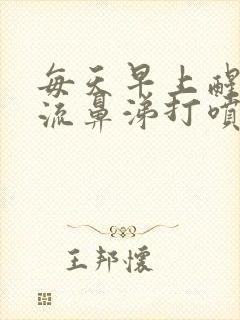 每天早上醒
流鼻涕打噴
王邦懷